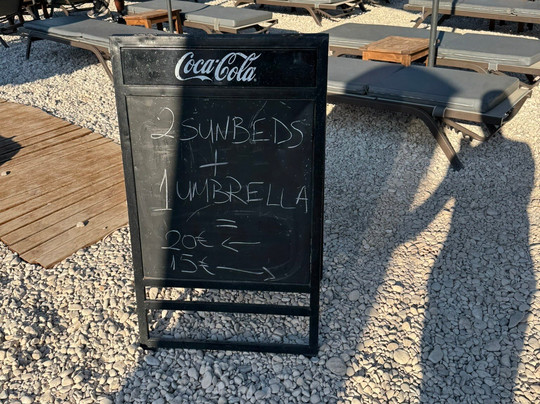 Coca-Cola
2 SUNBEDS
+
1 UMBRELLA
=
20€ ←
15€ →